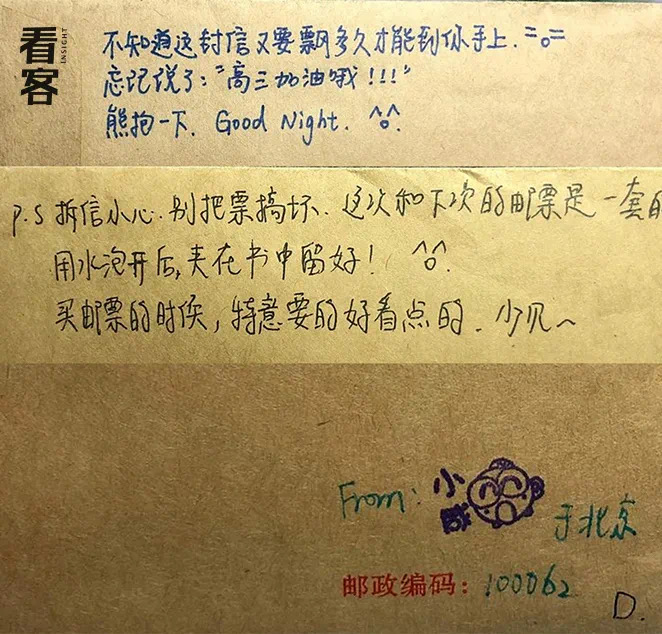 看客
INSIGHT
不知道这封信又要飘多久才能到你手上. =o=
忘记说了:"高三加油哦!!!"
熊抱一下. Good Night. ^o^.
P.S 拆信小心.别把票搞坏.这次和下次的邮票是一套的
用水泡开后,夹在书中留好! ^o^.
买邮票的时候,特意要的好看点的.少见~
From: 小
于北京
邮政编码: 100062
D.